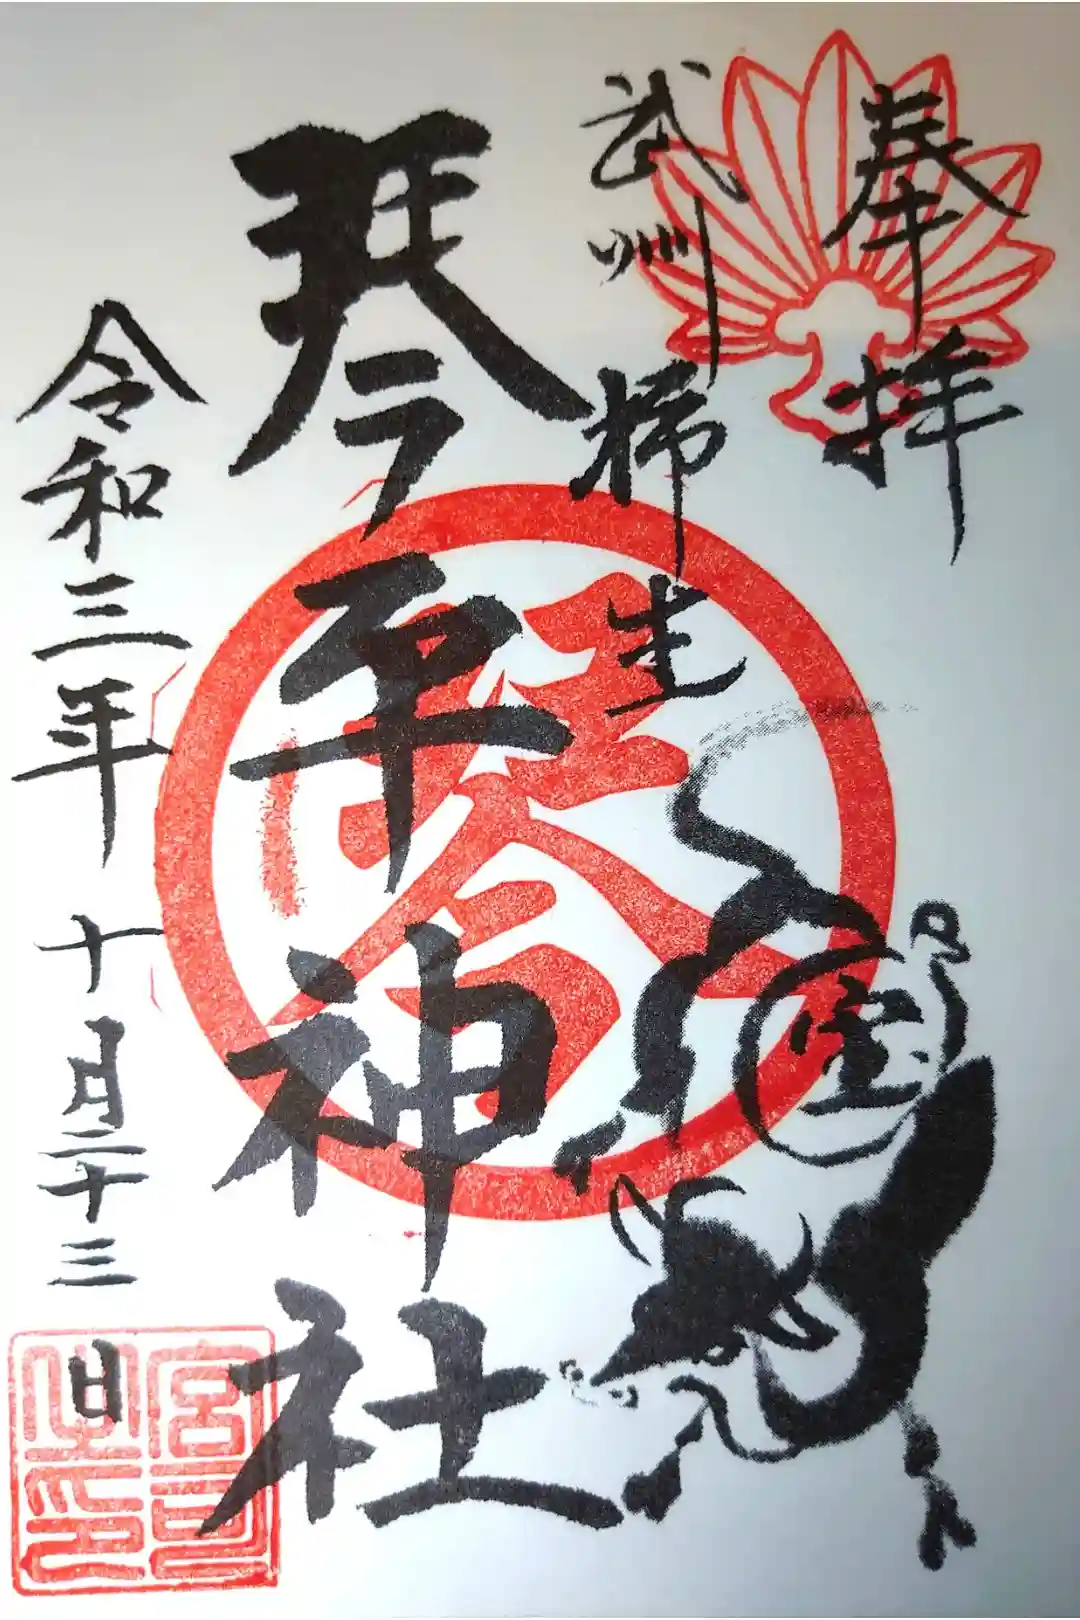 奉拝
武州柿生
琴平神社
令和三年十月二十三日
琴
宝
宮司
之印